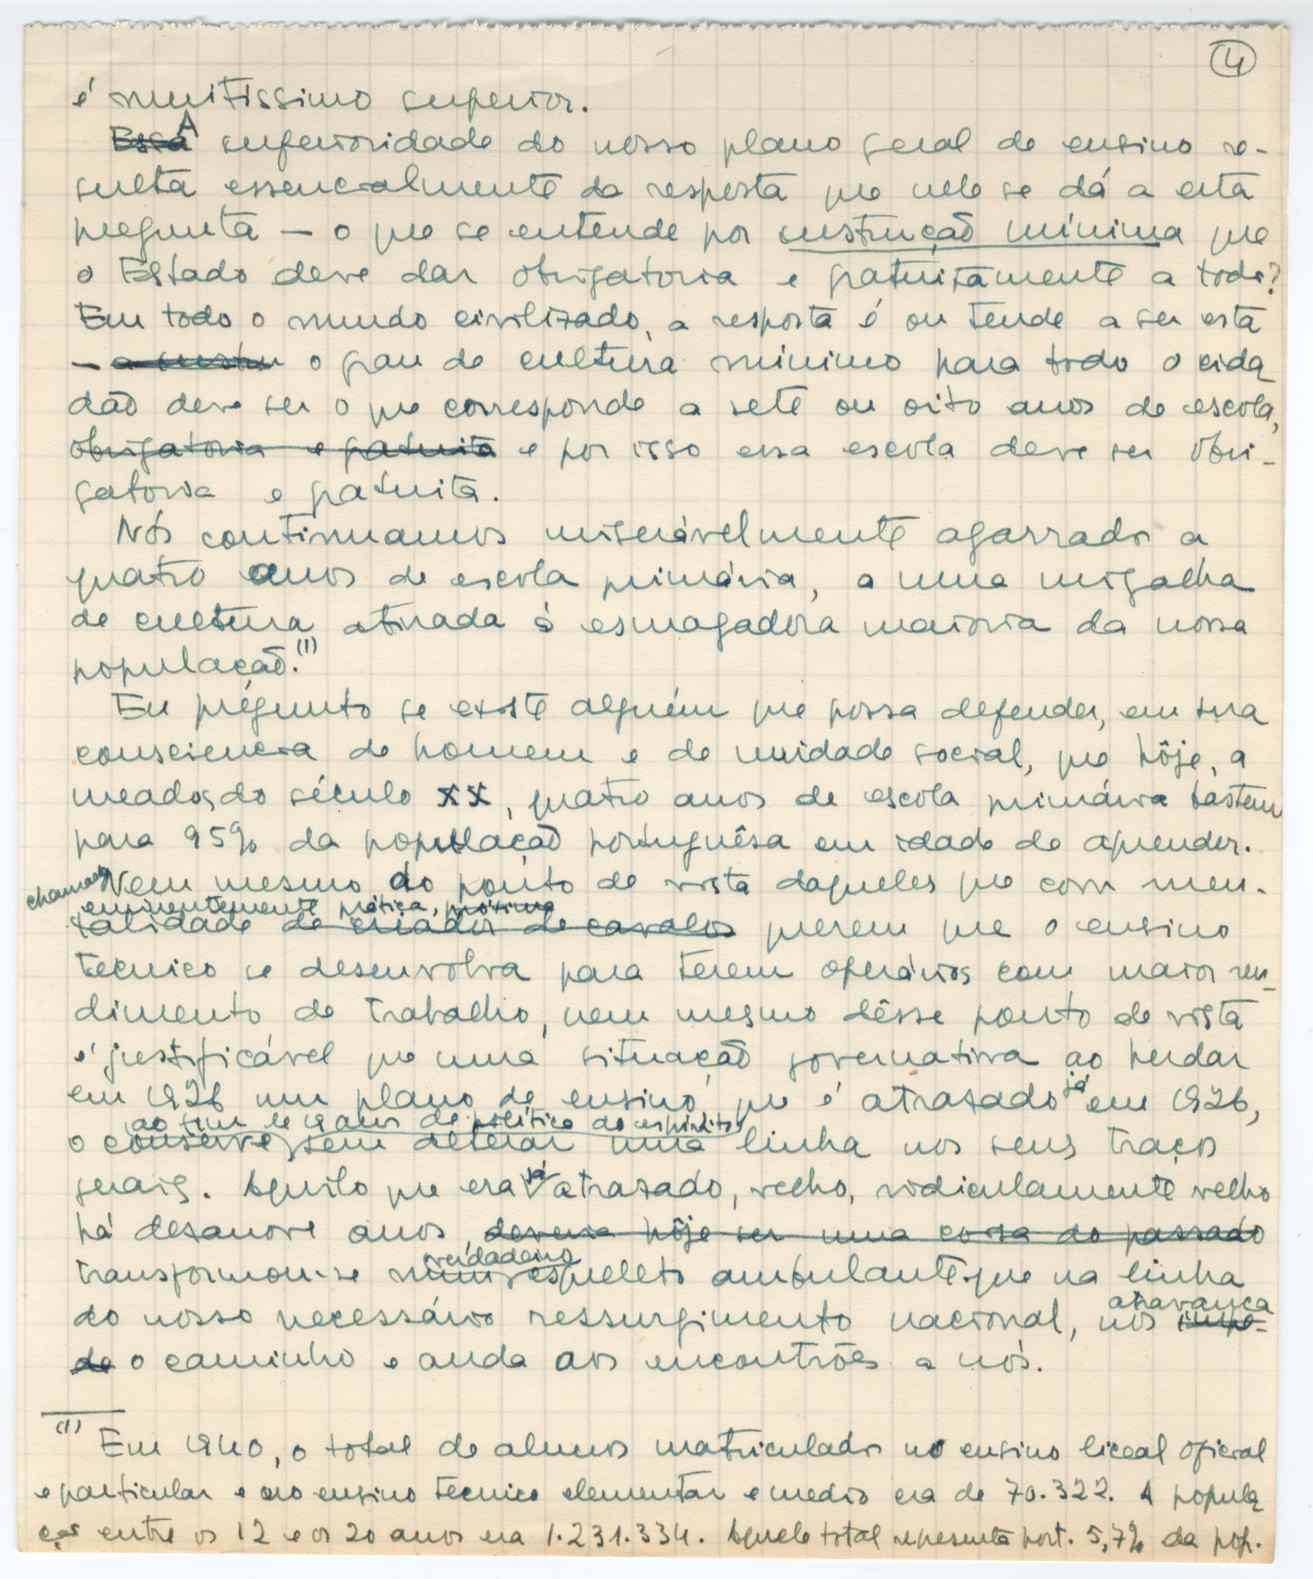 4
é muitissimo superior.
Essa A inferioridade do nosso plano geral de ensino re-
sulta essencialmente da resposta que nele se dá a esta
pregunta — o que se entende por instrução mínima que
o Estado deve dar obrigatoria e gratuitamente a todos?
Em todo o mundo civilizado, a resposta é ou tende a ser esta
— o grau de cultura mínimo para todo o cida
dão deve ser o que corresponde a sete ou oito anos de escola,
obrigatoria e gratuita e por isso essa escola deve ser obri-
gatoria e gratuita.
Nós continuamos miserávelmente agarrados a
quatro anos de escola primária, a uma migalha
de cultura atirada à esmagadora maioria da nossa
população.(1)
Eu pregunto se existe alguém que possa defender, em sua
consciencia de homem e de unidade social, que hôje, a
meados do século XX, quatro anos de escola primária bastem
para 95% da população portuguêsa em idade de aprender.
Nem mesmo do ponto de vista daqueles que com men-
chamada eminentemente prática, próxima
talidade de criador de cavalos querem que o ensino
tecnico se desenvolva para terem operários com maior ren-
dimento de trabalho, nem mesmo dêsse ponto de vista
é justificável que uma situação governativa ao herdar
em 1926 um plano de ensino que é atrasado já em 1926,
ao fim de 19 anos de política do espírito,
o conserve sem alterar uma linha nos seus traços
gerais. Aquilo que era já atrasado, velho, ridiculamente velho
há dezanove anos, deveria hôje ser uma coisa do passado
transformou-se num verdadeiro esqueleto ambulante que na linha
do nosso necessário ressurgimento nacional, nos impe- atravanca
de o caminho e anda aos encontrões a nós.
(1) Em 1940, o total de alunos matriculados no ensino liceal oficial
e particular e no ensino tecnico elementar e medio era de 70.322. A popula
ção entre os 12 e os 20 anos era 1.231.334. Aquele total representa port. 5,7% da pop.